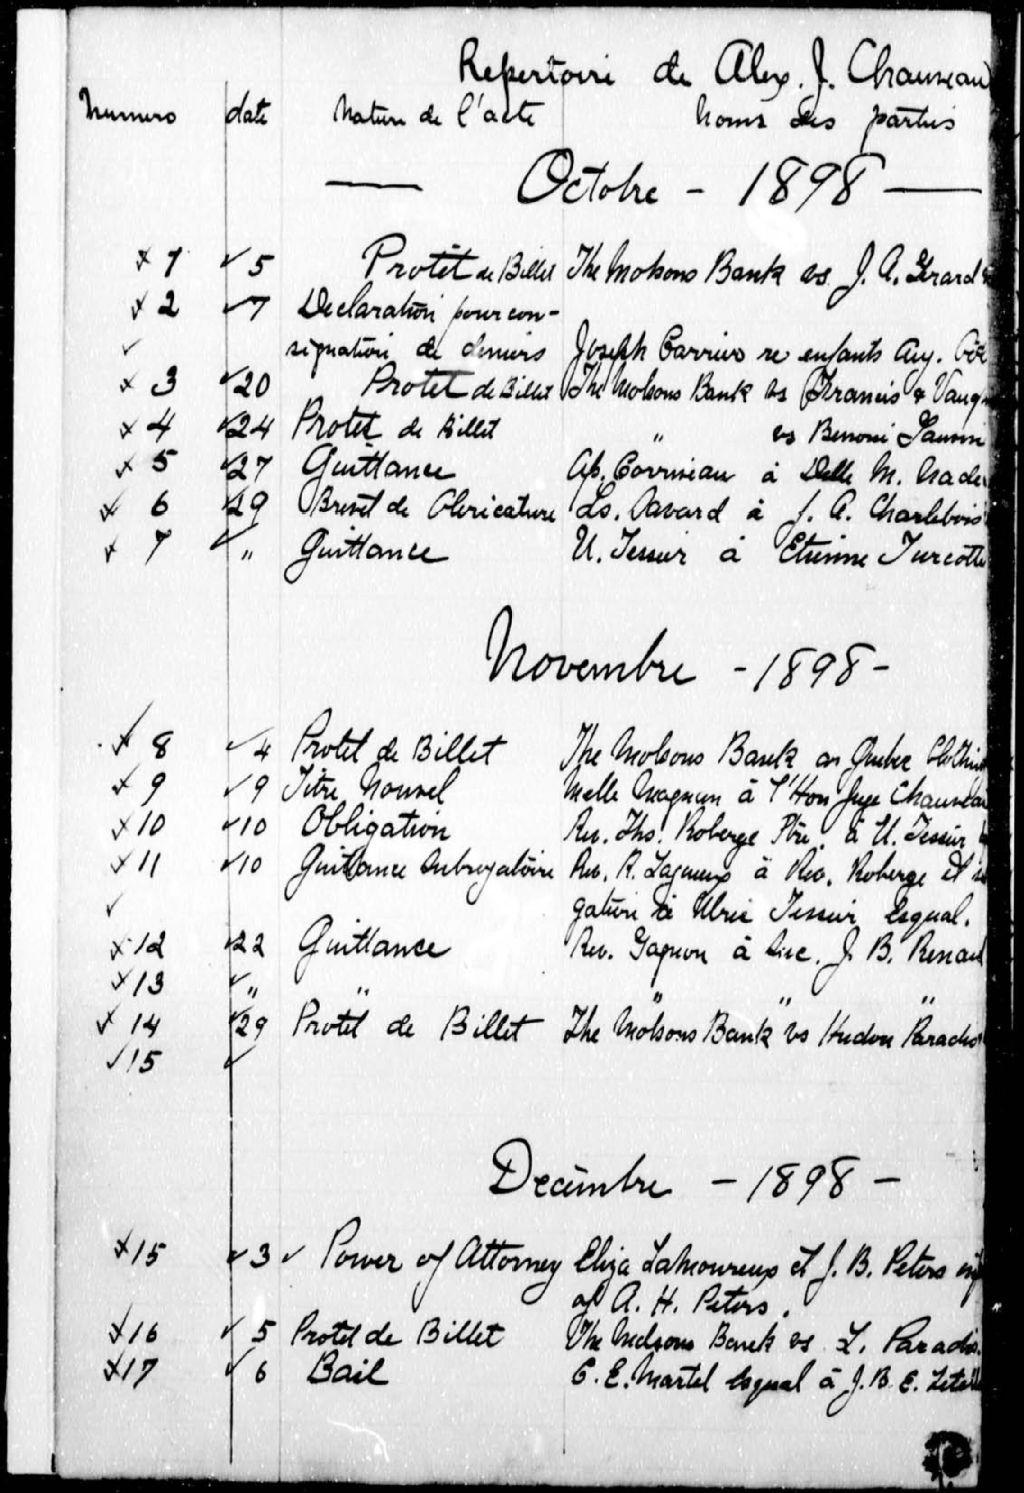 Repertoire de Alex. J. Chauveau
Numero date Nature de l'acte Noms des parties
Octobre - 1898
1 5 Protêt de Billet The Molsons Bank vs J. A. Gerard
2 7 Declaration pour con-
signation de deniers Joseph Carrier re enfants Aug.
3 20 Protet de Billet The Molsons Bank vs Francis &
4 24 Protet de Billet " vs Benoni
5 27 Quittance à Delle M.
6 29 Brevet de Clericature Ls. Savard à J. A. Charlebois
7 " Quittance U. Tessier à Etienne Turcotte
Novembre - 1898 -
8 4 Protet de Billet The Molsons Bank Quebec
9 9 Titre Nouvel Melle Magnan à l'Hon Juge Chauveau
10 10 Obligation Rev. Ths. Roberge Ptre. à U. Tessier
11 10 Quittance Subrogatoire Rev. R. à Rev. Roberge et
gation à Ulric Tessier Esqual.
12 22 Quittance Rev. Gagnon à Suc. J. B. Renaud
13 " " " " "
14 29 Protêt de Billet The Molsons Bank vs Hudon Paradis
15
Decembre - 1898 -
15 3 Power of Attorney Eliza Lamoureux et J. B. Peters
of A. H. Peters.
16 5 Protet de Billet The Molsons Bank vs L. Paradis.
17 6 Bail C. E. Martel Esqual à J. B. E.